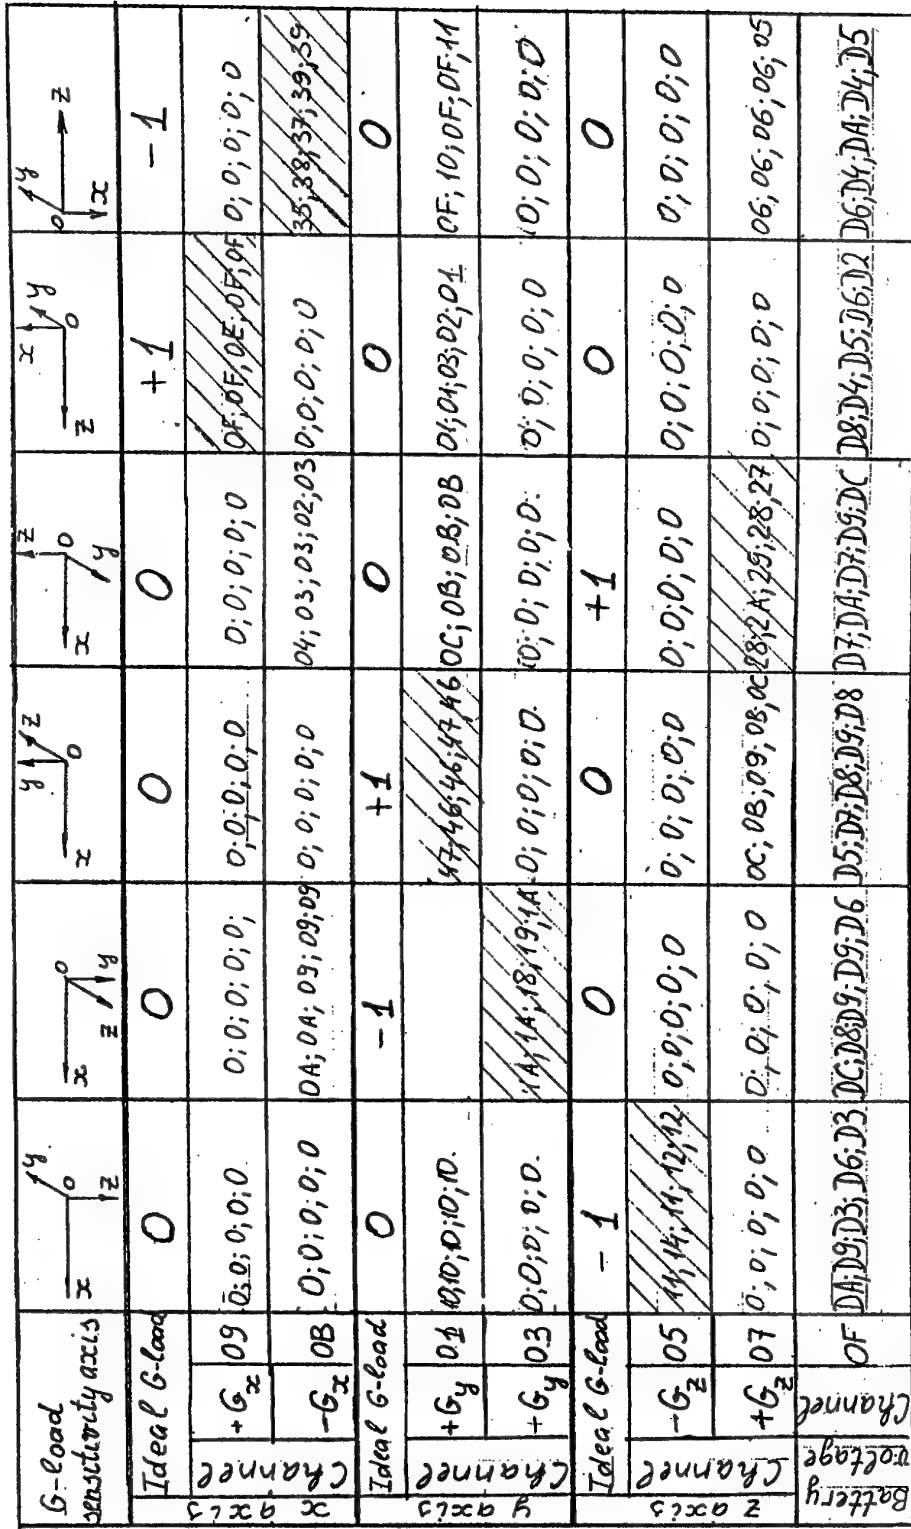 G-load sensitivity axis
x y O z
x O z y
y z x O
z x O y
x y z O
y O z x
Ideal G-load 0 0 0 0 +1 -1
x axis Channel
+Gx 09 0;0;0;0;0 0;0;0;0; 0;0;0;0;0 0;0;0;0;0 0F;0F;0E;0F;0F 0;0;0;0;0
-Gx 0B 0;0;0;0;0 0A;0A;09;09;09 0;0;0;0;0 04;03;03;02;03 0;0;0;0;0 35;38;37;39;39
Ideal G-load 0 -1 +1 0 0 0
y axis Channel
+Gy 01 10,10;10;10;10. 47;46;46;47;46 0C;0B;0B;0B 01;01;03;02;01 0F;10;0F;0F;11
+Gy 03 0;0;0;0;0. 1A;1A;18;19;1A 0;0;0;0;0. 0;0;0;0;0. 0;0;0;0;0 0;0;0;0;0
Ideal G-load -1 0 0 +1 0 0
z axis Channel
-Gz 05 11;14;11;12;12 0;0;0;0;0 0;0;0;0;0 0;0;0;0;0 0;0;0;0;0 0;0;0;0;0
+Gz 07 0;0;0;0;0 0;0;0;0;0 0C;0B;09;0B;0C 28;2A;29;28;27 0;0;0;0;0 06;06;06;06;05
Battery voltage Channel 0F DA;D9;D3;D6;D3 DC;D8;D9;D9;D6 D5;D7;D8;D9;D8 D7;DA;D7;D9;DC D8;D4;D5;D6;D2 D6;D4;DA;D4;D5